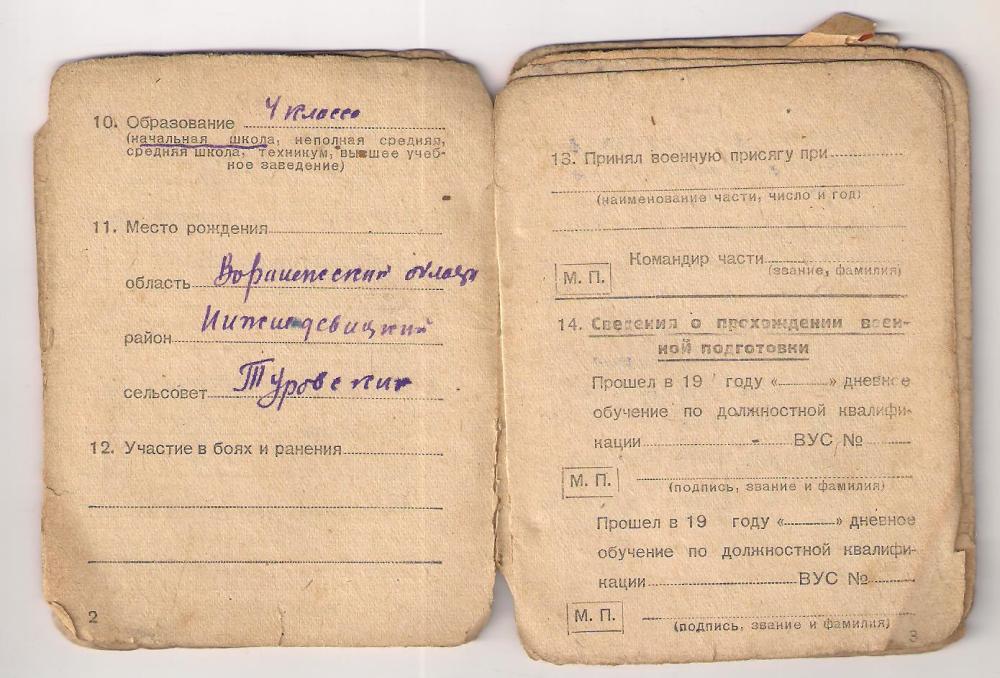 10. Образование 4 класса
(начальная школа, неполная средняя,
средняя школа, техникум, высшее учеб-
ное заведение)
11. Место рождения
область Воронежская область
район Нижнедевицкий
сельсовет Туровский
12. Участие в боях и ранения
2
13. Принял военную присягу при
(наименование части, число и год)
Командир части
(звание, фамилия)
М. П.
14. Сведения о прохождении воен-
ной подготовки
Прошел в 19 году « » дневное
обучение по должностной квалифи-
кации ВУС №
М. П.
(подпись, звание и фамилия)
Прошел в 19 году « » дневное
обучение по должностной квалифи-
кации ВУС №
М. П.
(подпись, звание и фамилия)
3